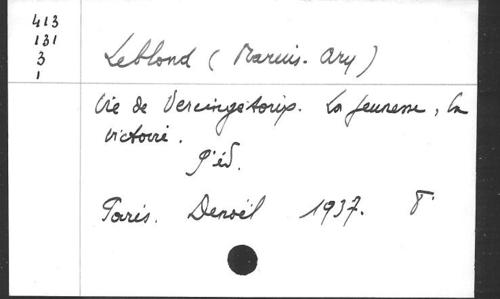 413
131
3
1
Leblond (Marius-Ary)
Vie de Vercingétorix. La jeunesse, la
victoire.
9e éd.
Paris. Denoël 1937.